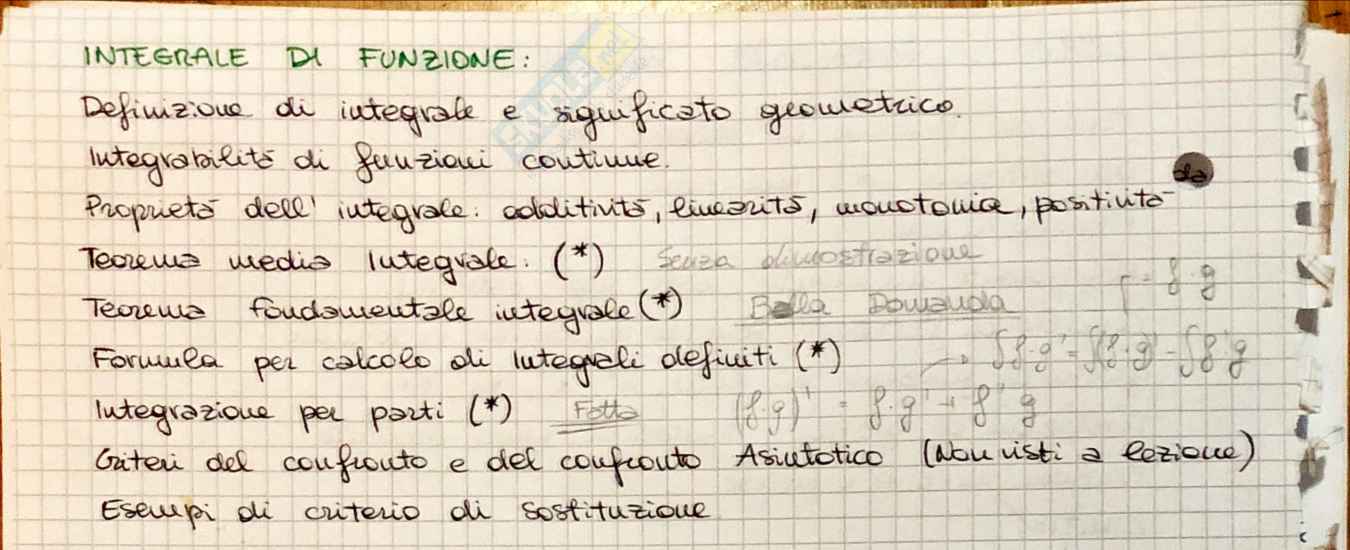 INTEGRALE DI FUNZIONE:
Definizione di integrale e significato geometrico.
Integrabilità di funzioni continue.
da
Proprietà dell' integrale: additività, linearità, monotonia, positività
Teorema media Integrale. (*) Senza dimostrazione
Teorema fondamentale integrale (*) Bella Domanda
∫ = f·g
Formula per calcolo di Integrali definiti (*) → ∫f·g' = ∫(f·g)' - ∫f'g
Integrazione per parti (*) Fatta (f·g)' = f·g' + f' g
Criteri del confronto e del confronto Asintotico (Non visti a lezione)
Esempi di criterio di sostituzione